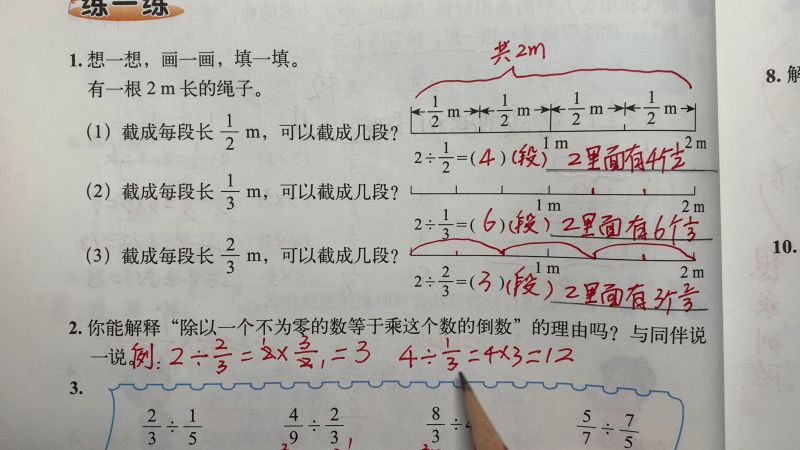 练一练
1. 想一想，画一画，填一填。
有一根 2 m 长的绳子。
共2m
1/2 m 1/2 m 1/2 m 1/2 m
(1) 截成每段长 1/2 m，可以截成几段？
1 m 2 m
2÷1/2=(4)(段) 2里面有4个1/2
(2) 截成每段长 1/3 m，可以截成几段？
1 m 2 m
2÷1/3=(6)(段) 2里面有6个1/3
(3) 截成每段长 2/3 m，可以截成几段？
1 m 2 m
2÷2/3=(3)(段) 2里面有3个2/3
2. 你能解释“除以一个不为零的数等于乘这个数的倒数”的理由吗？与同伴说
一说。例：2÷2/3=2×3/2=3 4÷1/3=4×3=12
3.
2/3÷1/5 4/9÷2/3 8/3÷ 5/7÷7/5
8. 解
10.